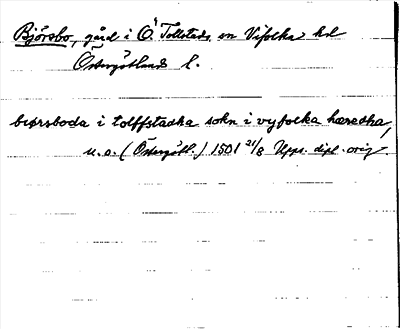 Björsbo, gård i Ö. Tollstads sn Vifolka hd
Östergötlands l.
biørsboda i tolffstadha sokn i vyfolka hæredha,
u.o. (Östergötl.) 1501 21/8 Upps. dipl. orig.